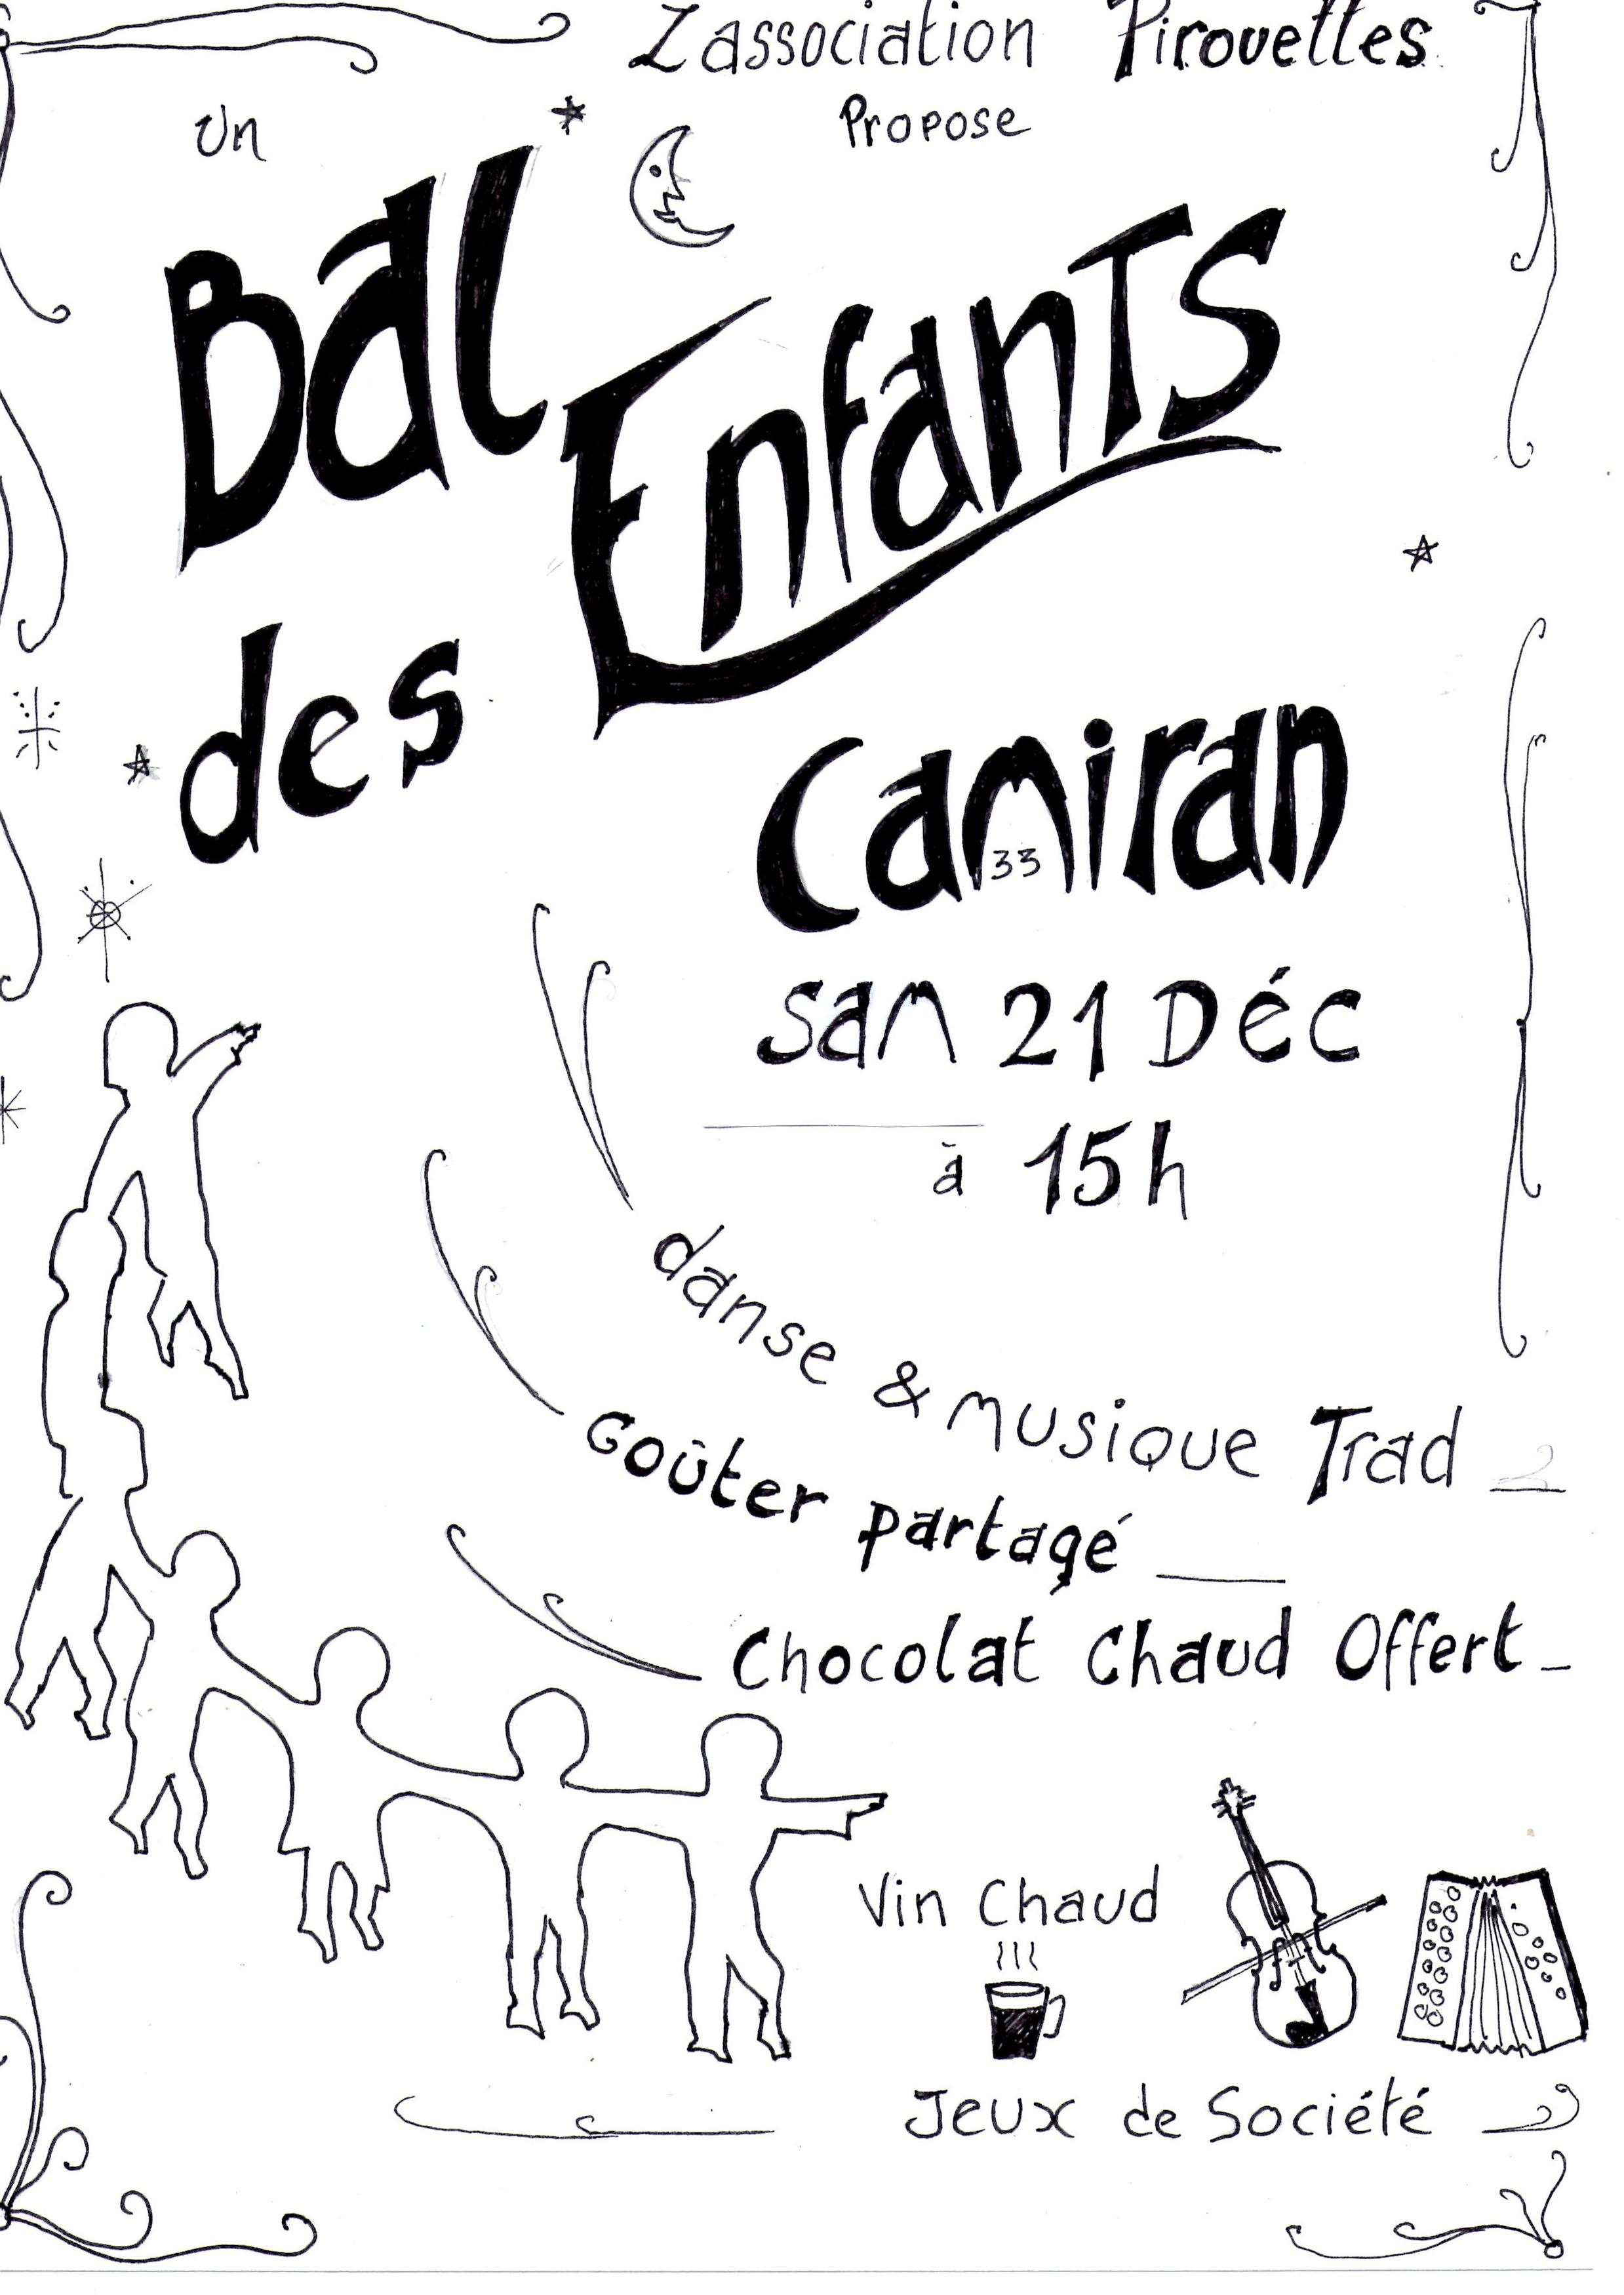 Zassociation Pirouettes
Propose
Un
Bal
des
Enfants
Camiran
33
Sam 21 Déc
à 15h
danse & musique Trad
Goûter partagé
Chocolat Chaud Offert
Vin Chaud
Jeux de Société